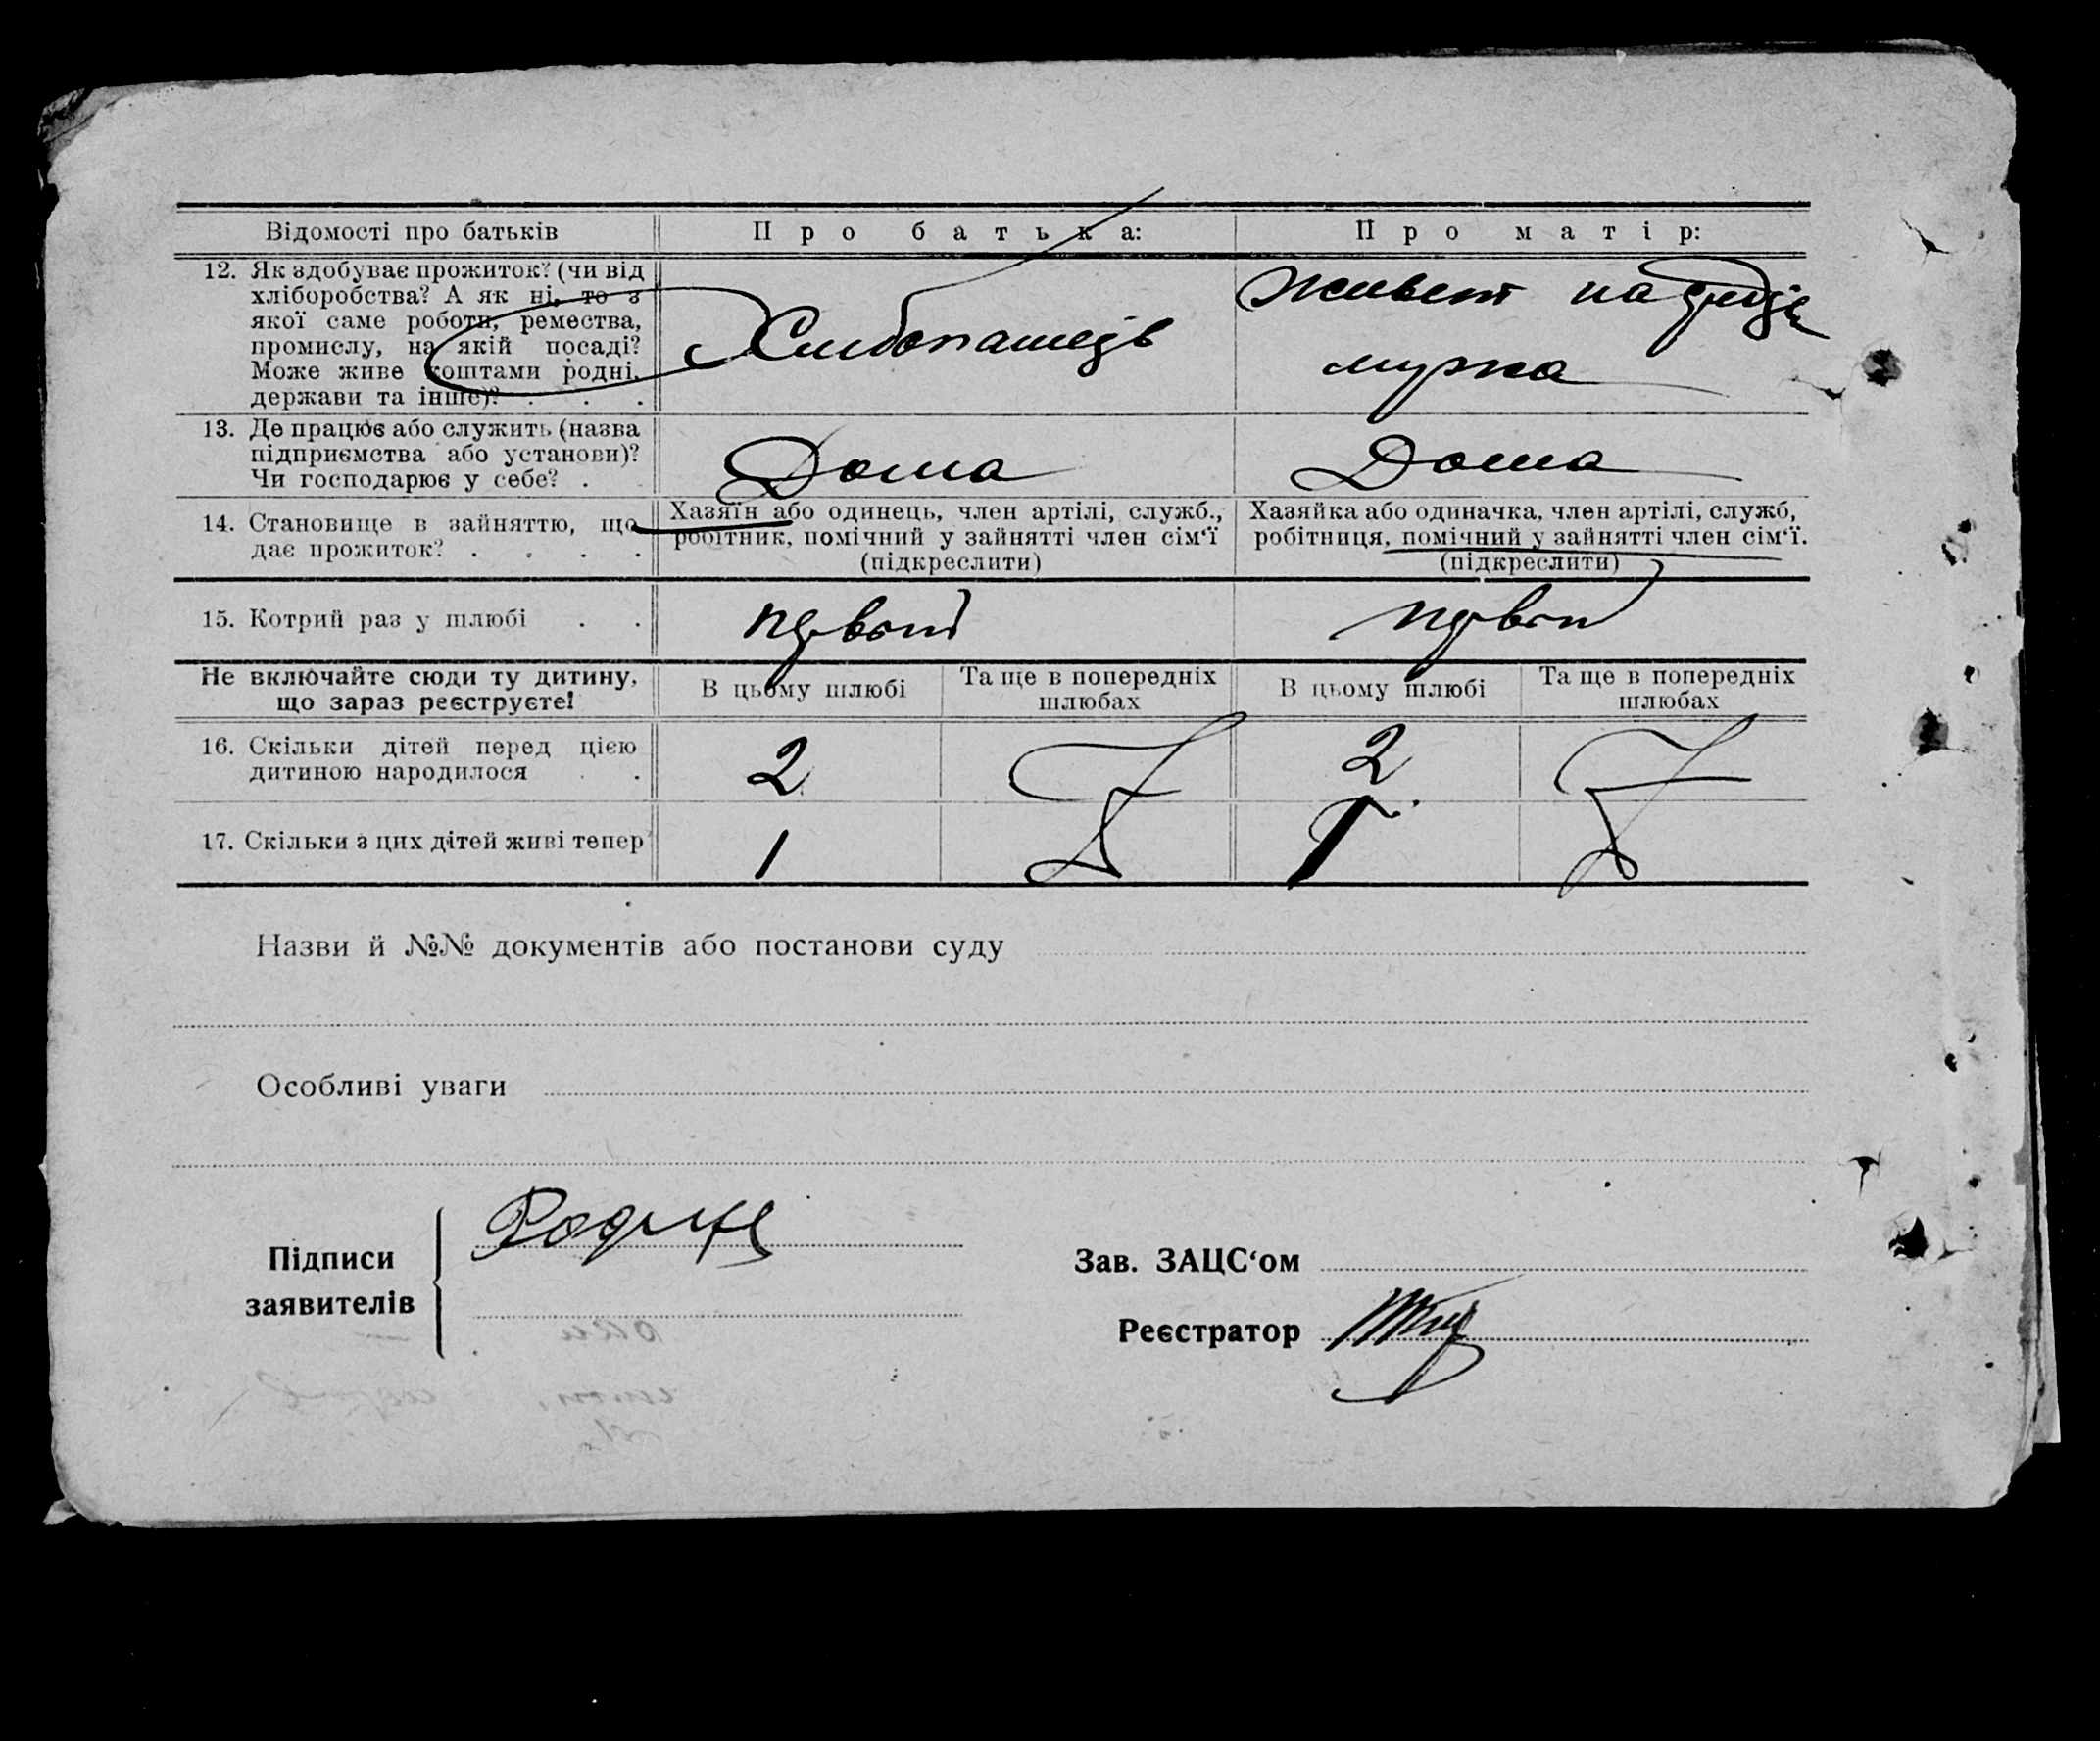 Відомості про батьків
Про батька:
Про матір:
12. Як здобуває прожиток? (чи від
хліборобства? А як ні, то з
якої саме роботи, ремества,
промислу, на якій посаді?
Може живе коштами родні,
держави та інше)? . . .
живет на
мужа
13. Де працює або служить (назва
підприємства або установи)?
Чи господарює у себе? .
Дома
Дома
14. Становище в зайняттю, що
дає прожиток? . . . .
Хазяїн або одинець, член артілі, служб.,
робітник, помічний у зайнятті член сім'ї
(підкреслити)
Хазяйка або одиначка, член артілі, служб,
робітниця, помічний у зайнятті член сім'ї.
(підкреслити)
15. Котрий раз у шлюбі . .
Не включайте сюди ту дитину,
що зараз реєструєте!
В цьому шлюбі
Та ще в попередніх
шлюбах
В цьому шлюбі
Та ще в попередніх
шлюбах
16. Скільки дітей перед цією
дитиною народилося . .
2
2
17. Скільки з цих дітей живі тепер
1
1
Назви й №№ документів або постанови суду
Особливі уваги
Підписи
заявителів
Зав. ЗАЦС'ом
Реєстратор